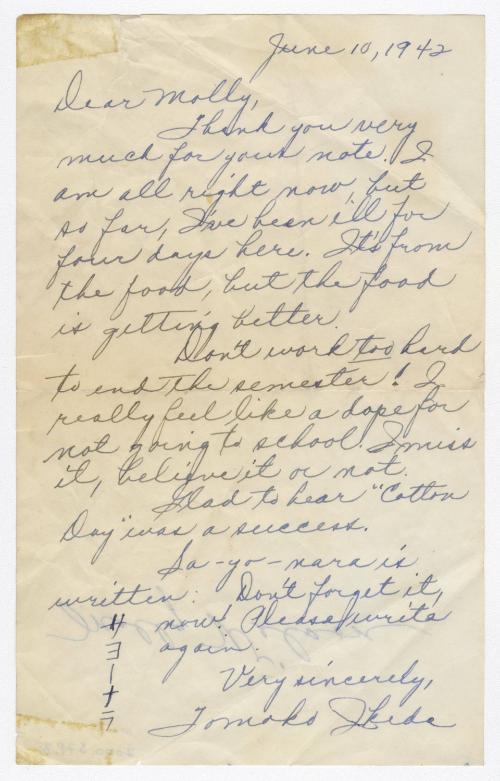 June 10, 1942
Dear Molly,
Thank you very
much for your note. I
am all right now, but
so far, I've been ill for
four days here. It's from
the food, but the food
is getting better.
Don't work too hard
to end the semester! I
really feel like a dope for
not going to school. I miss
it, believe it or not.
Glad to hear "Cotton
Day" was a success.
Sa-yo-nara is
written: Don't forget it,
now! Please write
again.
サヨーナラ
Very sincerely,
Tomoko Ikeda